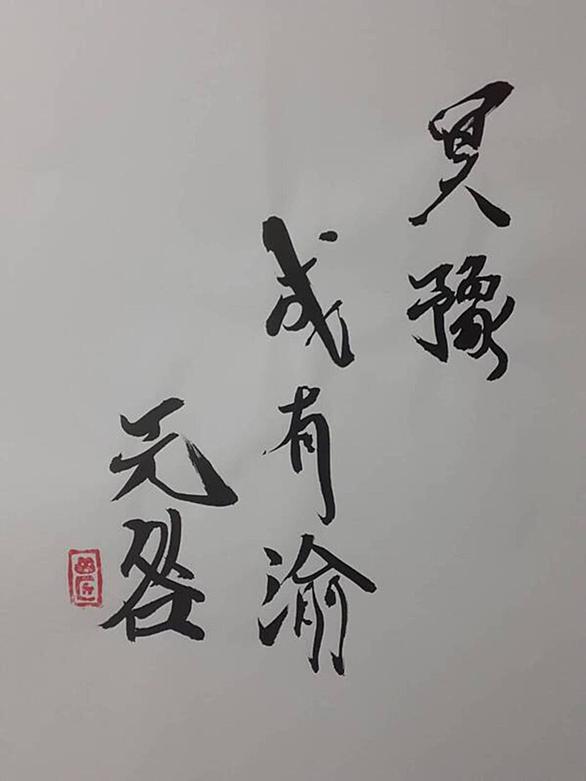 冥豫
成有渝
无咎